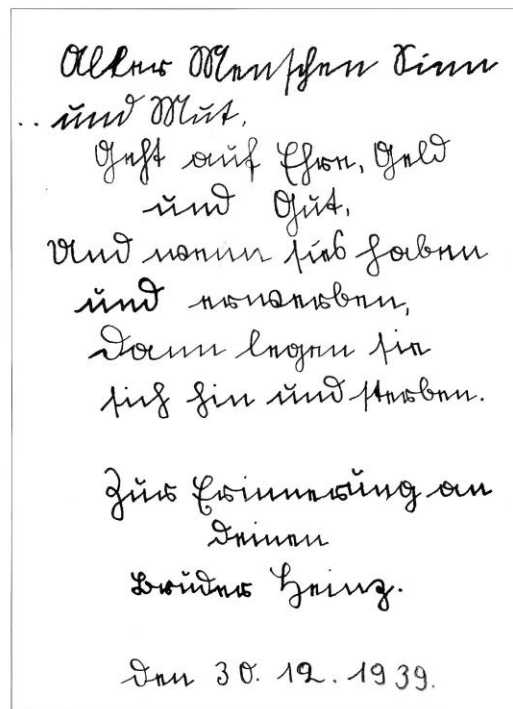 Aller Menschen Sinn
und Mut,
Geht auf Ehre, Geld
und Gut,
Und wenn sies haben
und erwerben,
Dann legen sie
sich hin und sterben.
Zur Erinnerung an
Deinen
Bruder Heinz.
Den 30. 12. 1939.